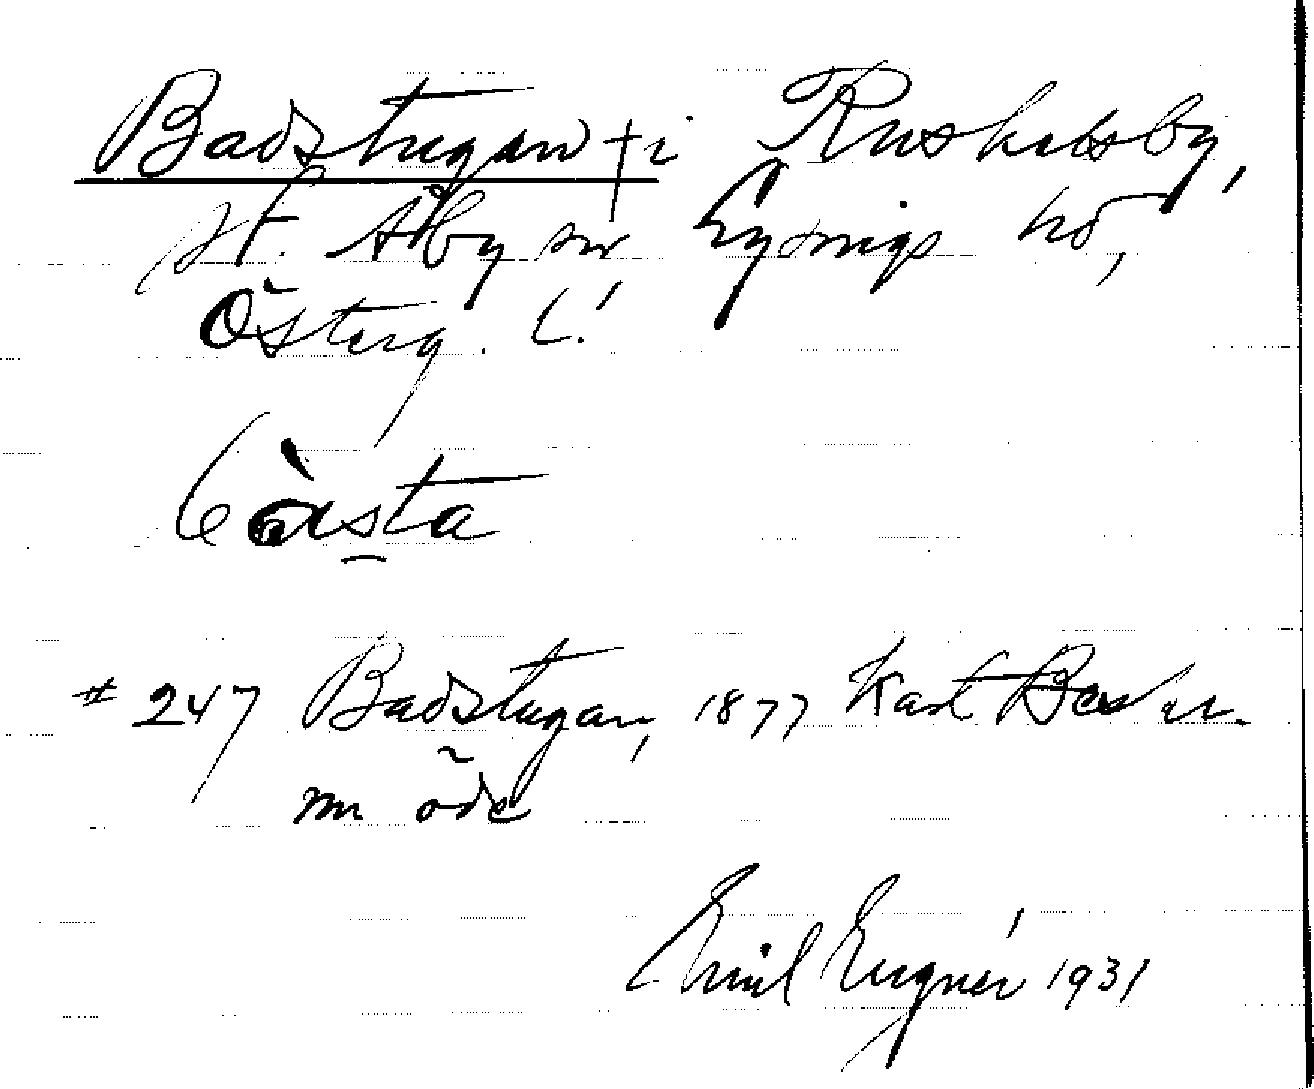 Badstugan † i Ruskelsby,
st. Åby sn Lysings hd,
Österg. L.
bàsta
# 247 Badstugan, 1877 Kart Beskr.
nu öde
Emil Engnér 1931